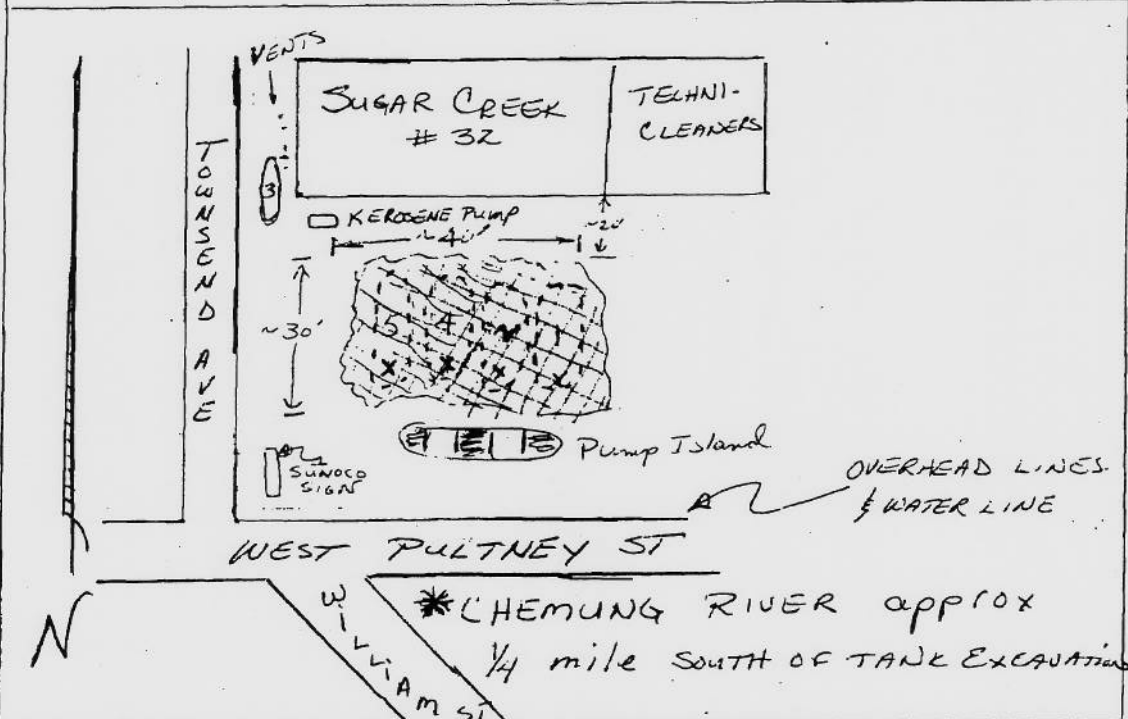 VENTS
SUGAR CREEK
# 32
TECHNI-
CLEANERS
TOWNSEND AVE
3
KEROSENE PUMP
~40'
~20'
~30'
5 4
1
X X X X
Pump Island
SUNOCO
SIGN
OVERHEAD LINES
& WATER LINE
WEST PULTNEY ST
WILLIAM ST
N
*CHEMUNG RIVER approx
1/4 mile SOUTH OF TANK EXCAVATION